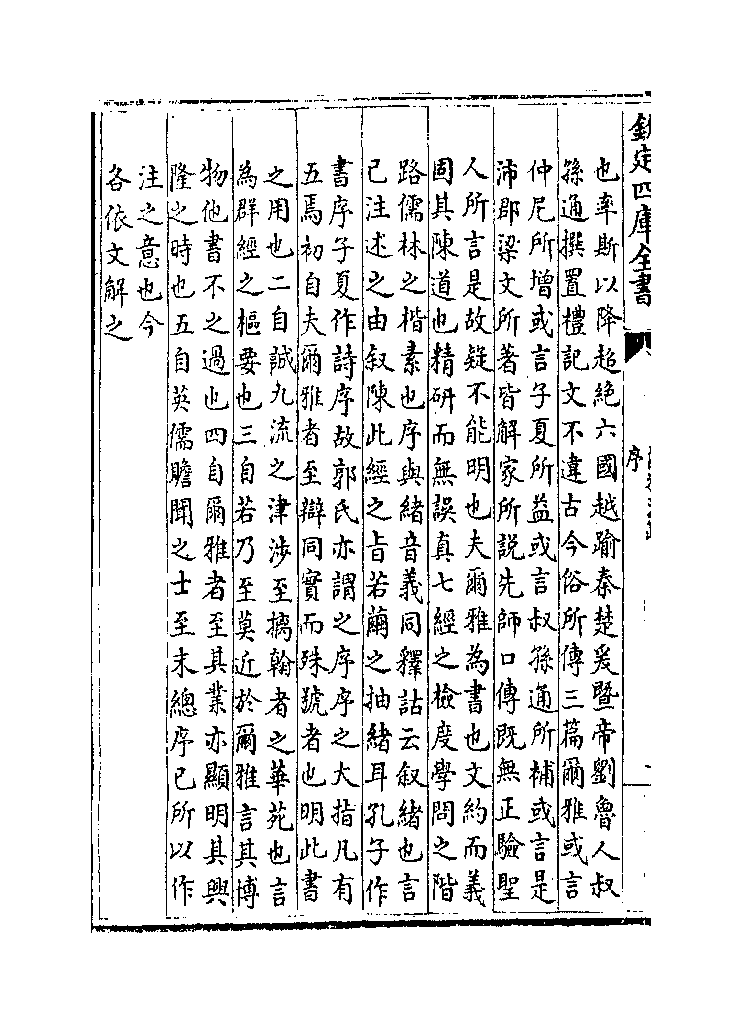 欽定四庫全書
序
也率斯以降超絶六國越踰秦楚爰暨帝劉魯人叔
孫通撰置禮記文不違古今俗所傳三篇爾雅或言
仲尼所增或言子夏所益或言叔孫通所補或言是
沛郡梁文所著皆解家所說先師口傳既無正驗聖
人所言是故疑不能明也夫爾雅為書也文約而義
固其陳道也精研而無誤真七經之檢度學問之階
路儒林之楷素也序與緒音義同釋詁云叙緒也言
已注述之由叙陳此經之旨若繭之抽緒耳孔子作
書序子夏作詩序故郭氏亦謂之序序之大指凡有
五焉初自夫爾雅者至辯同實而殊號者也明此書
之用也二自誠九流之津涉至摛翰者之華苑也言
為群經之樞要也三自若乃至莫近於爾雅言其博
物他書不之過也四自爾雅者至其業亦顯明其興
隆之時也五自英儒贍聞之士至末總序已所以作
注之意也今
各依文解之